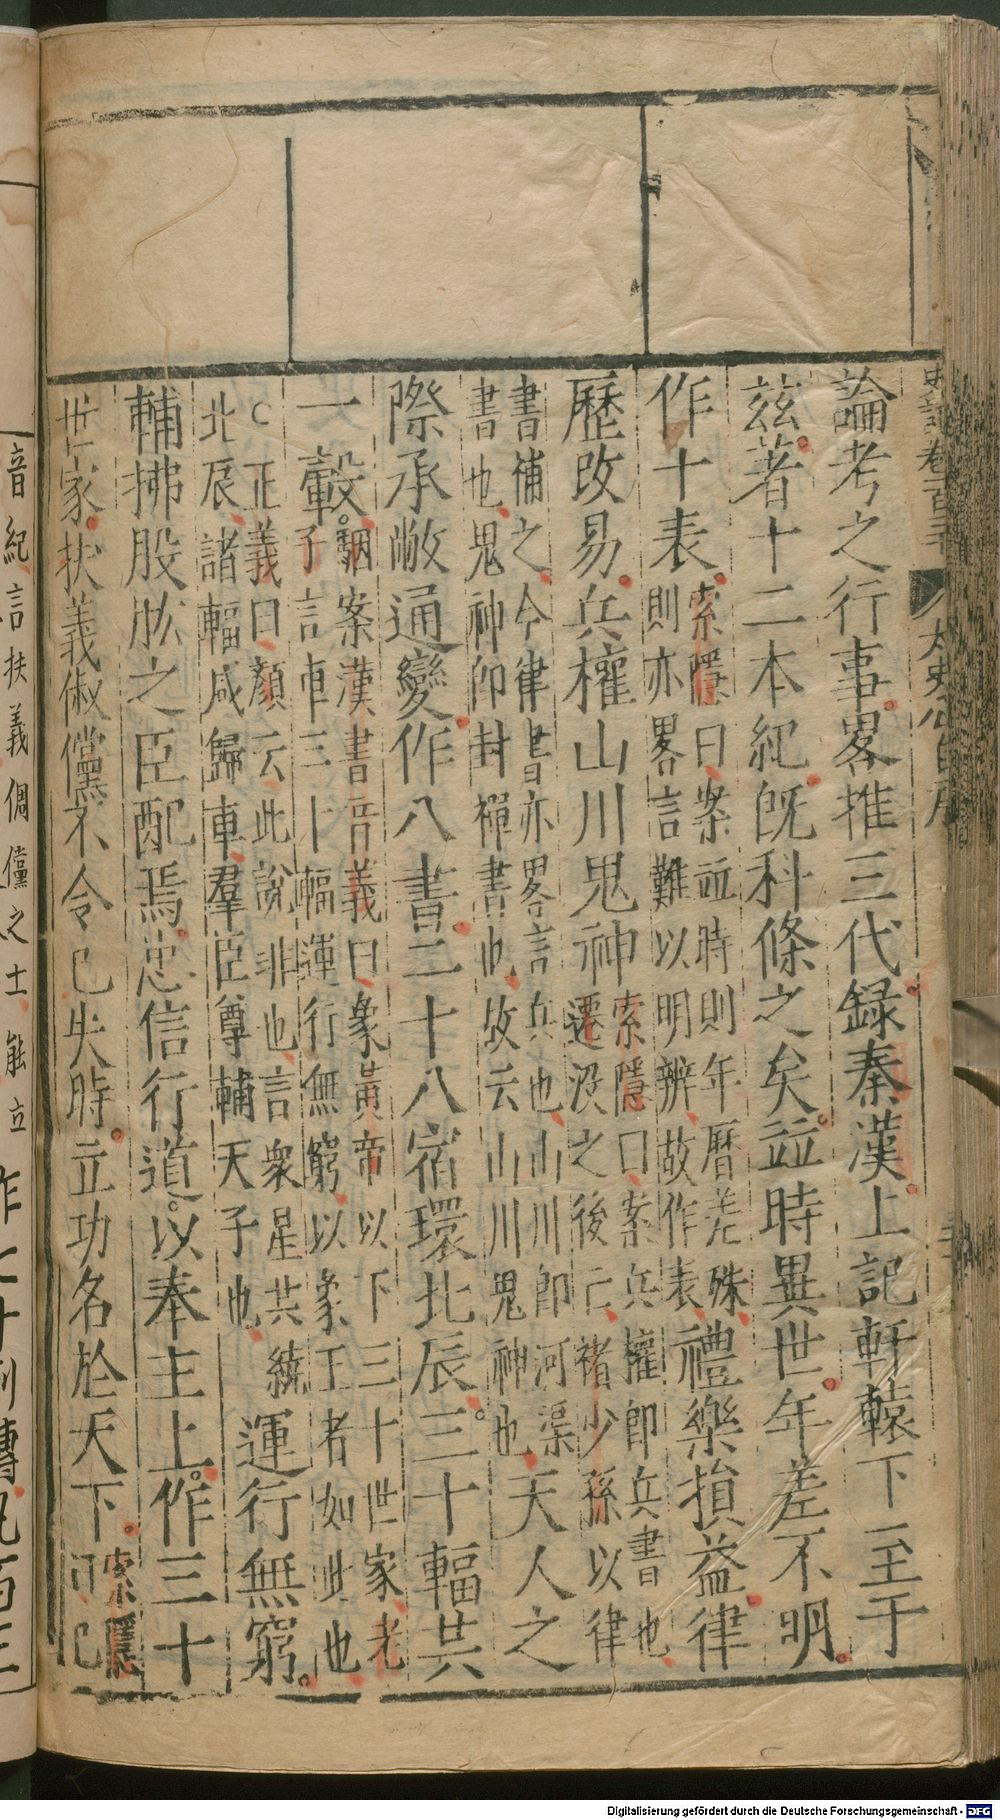 論考之行事畧推三代録秦漢上記軒轅下至于
茲著十二本紀旣科條之矣竝時異世年差不明
作十表索隱曰案竝時則年曆差殊
則亦畧言難以明辨故作表禮樂損益律
歷改易兵權山川鬼神索隱曰案兵權即兵書也
遷没之後亡褚少孫以律
書補之今律書亦畧言兵也山川即河渠
書也鬼神即封禪書也故云山川鬼神也天人之
際承敝通變作八書二十八宿環北辰三十輻共
一轂駰案漢書音義曰象黃帝以下三十世家老
子言車三十輻運行無窮以象王者如此也
正義曰顏云此說非也言衆星共繞
北辰諸輻咸歸車羣臣尊輔天子也運行無窮
輔拂股肱之臣配焉忠信行道以奉主上作三十
世家扶義俶儻不令已失時立功名於天下索隱
太史公自序
音紀言扶義倜儻之士能立
Digitalisierung gefördert durch die Deutsche Forschungsgemeinschaft - DFG